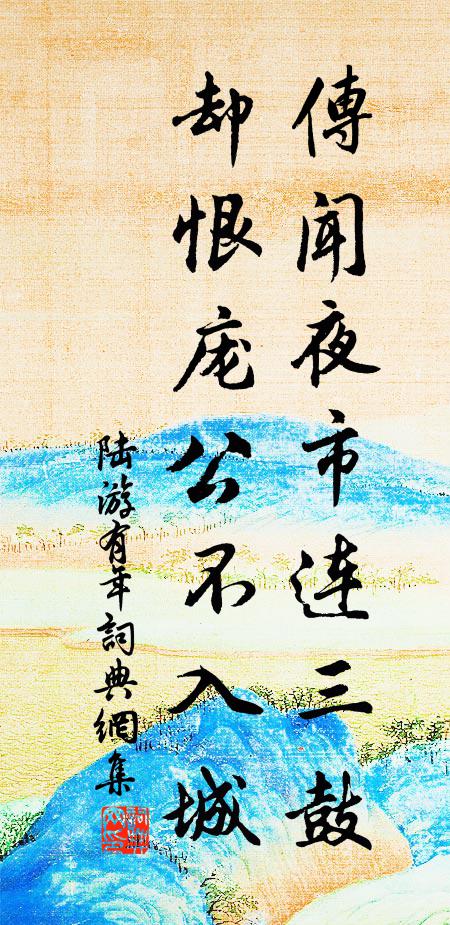 傳聞夜市連三鼓
却恨庞公不入城
陆游有年詞典網集